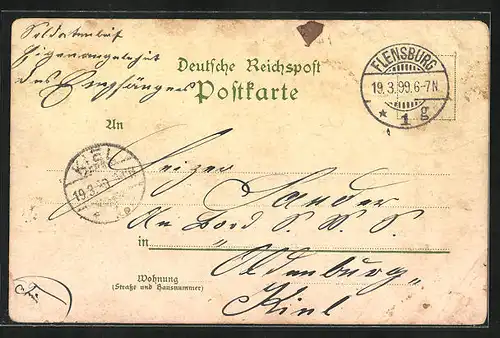 Soldatenbrief
Eigenangelegenheit
des Empfängers
Deutsche Reichspost
Postkarte
FLENSBURG
19.3.99.6-7N
* 1 g
An
KIEL
19.3.
Heizer
Sander
An Bord S. M. S.
in "Oldenburg"
Kiel
Wohnung
(Straße und Hausnummer)